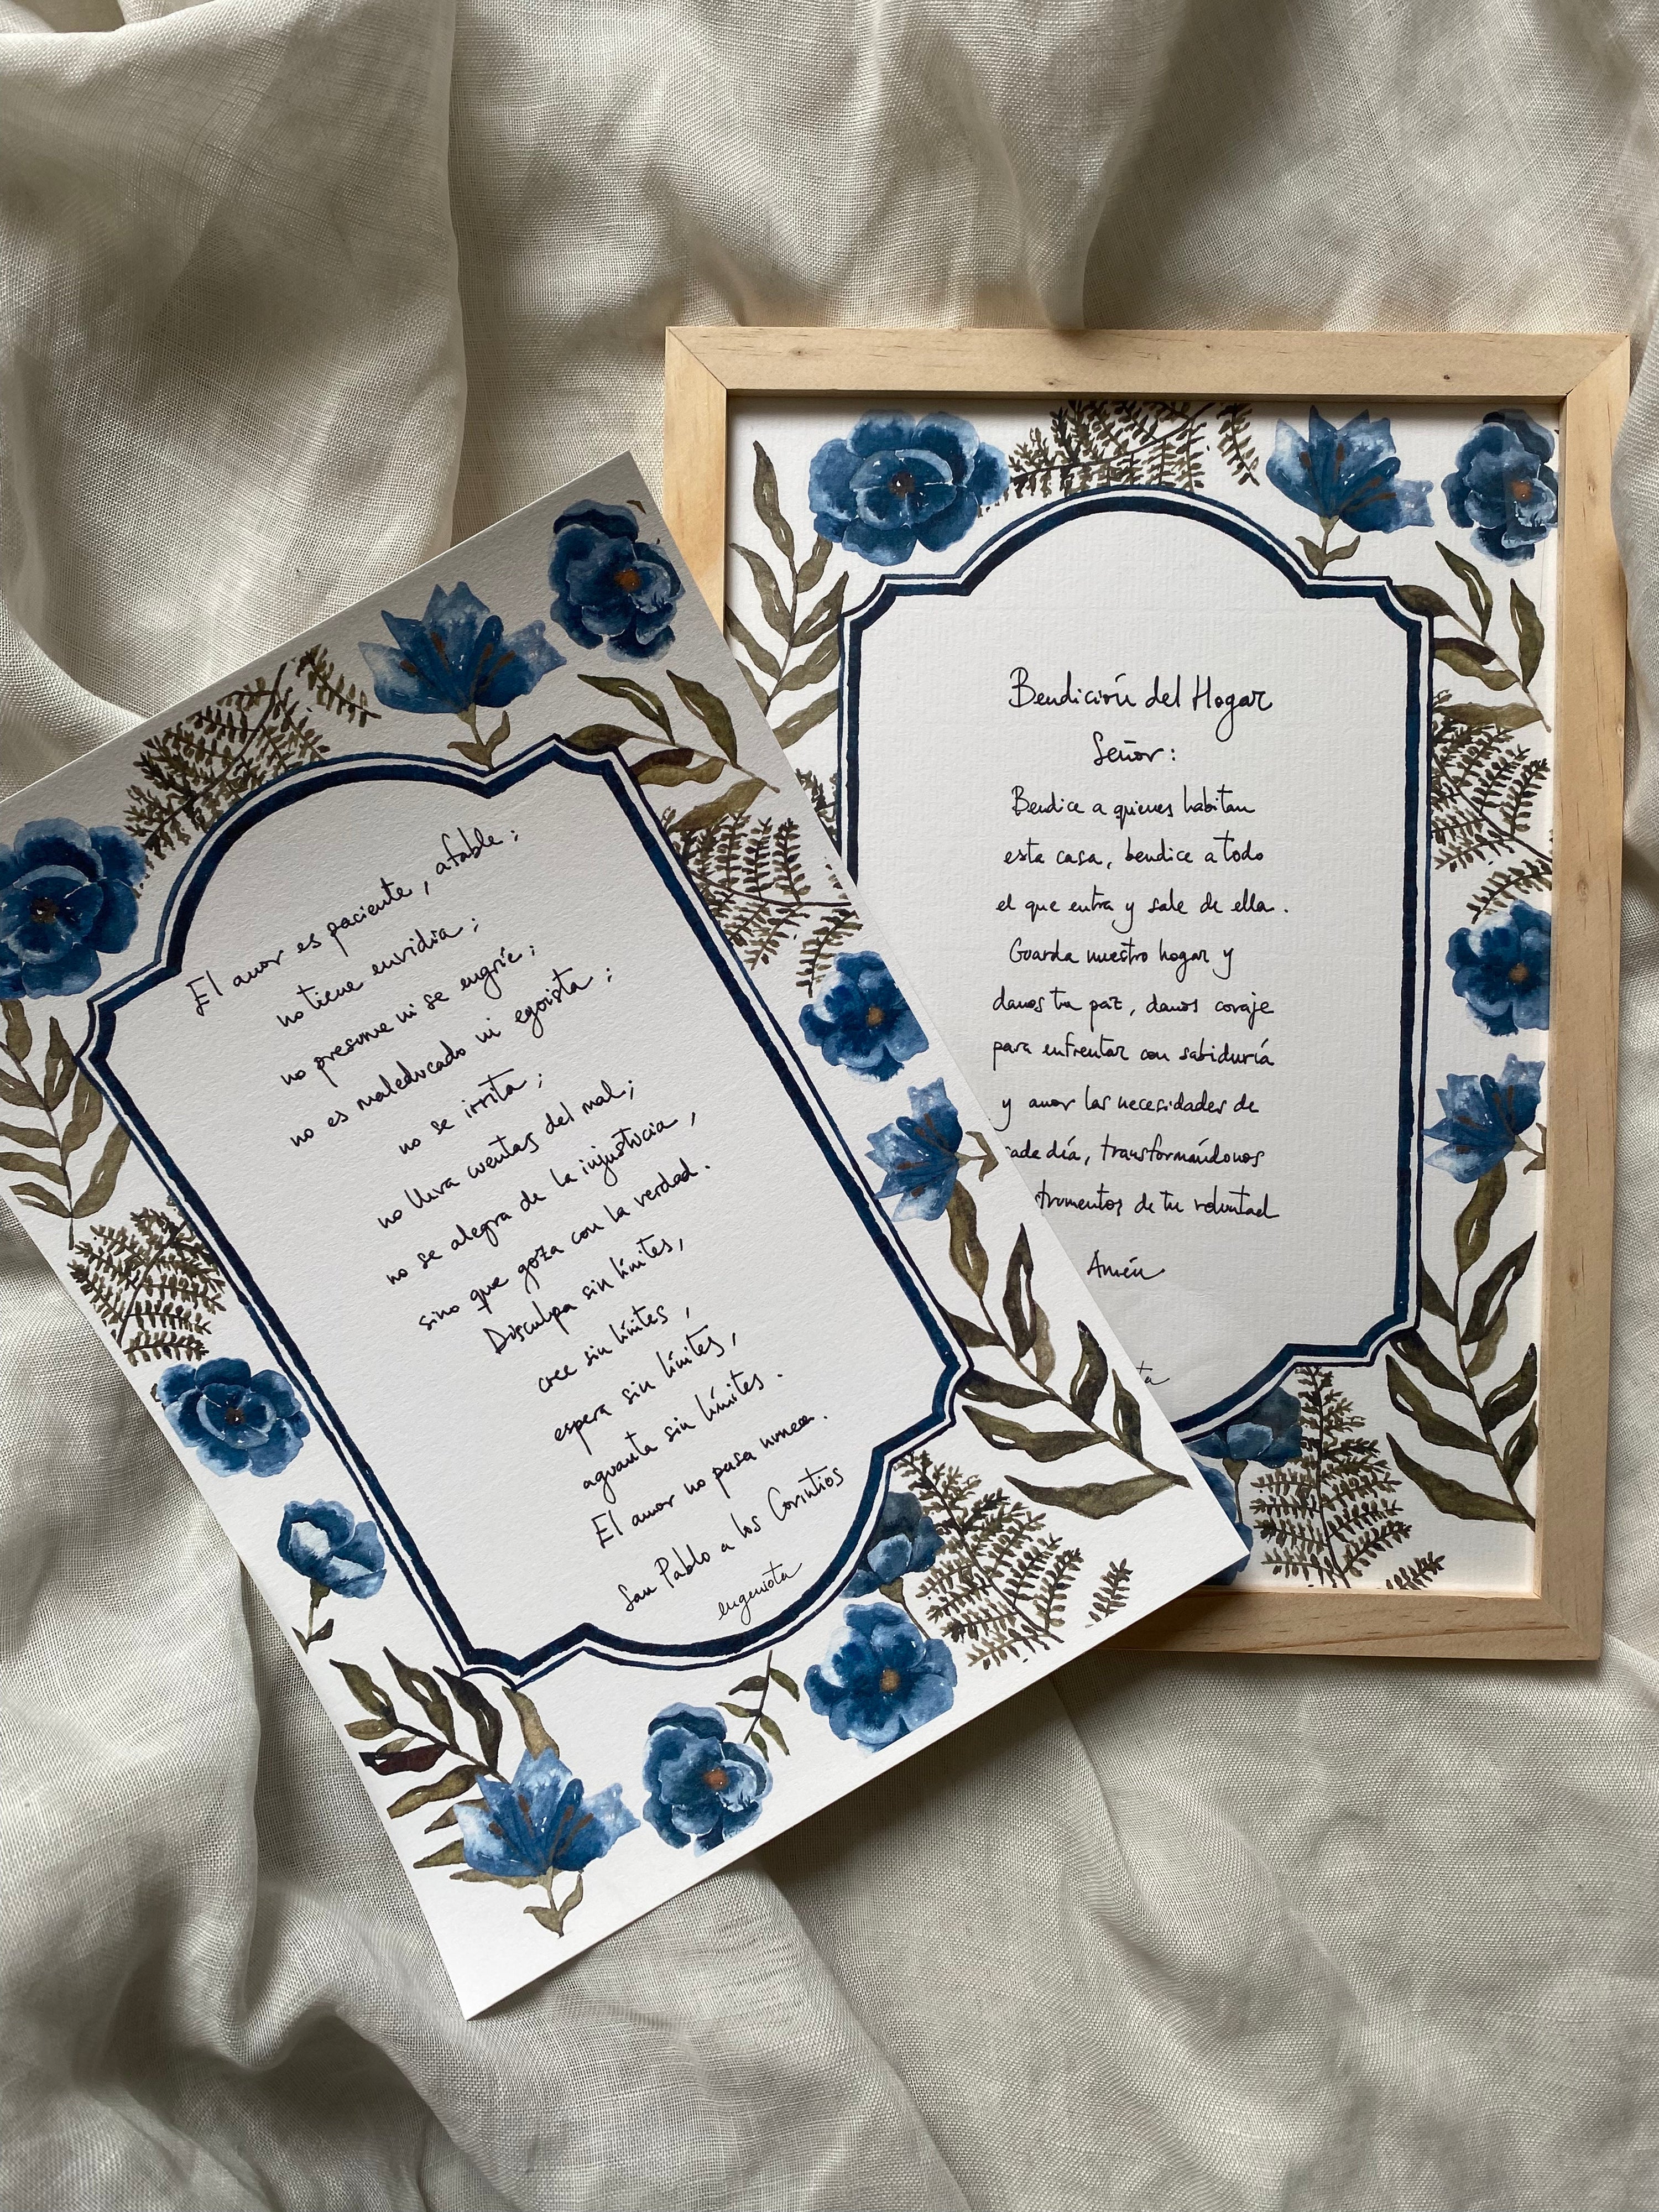 El amor es paciente, afable;
no tiene envidia;
no presume ni se engríe;
no es maleducado ni egoista;
no se irrita;
no lleva cuentas del mal;
no se alegra de la injusticia,
sino que goza con la verdad.
Disculpa sin límites,
cree sin límites,
espera sin límites,
aguanta sin límites.
El amor no pasa nunca.
San Pablo a los Corintios
eugeniota
Bendición del Hogar
Señor:
Bendice a quienes habitan
esta casa, bendice a todo
el que entra y sale de ella.
Guarda nuestro hogar y
danos tu paz, danos coraje
para enfrentar con sabiduría
y amor las necesidades de
ada día, transformándonos
trumentos de tu voluntad
Amén
ta